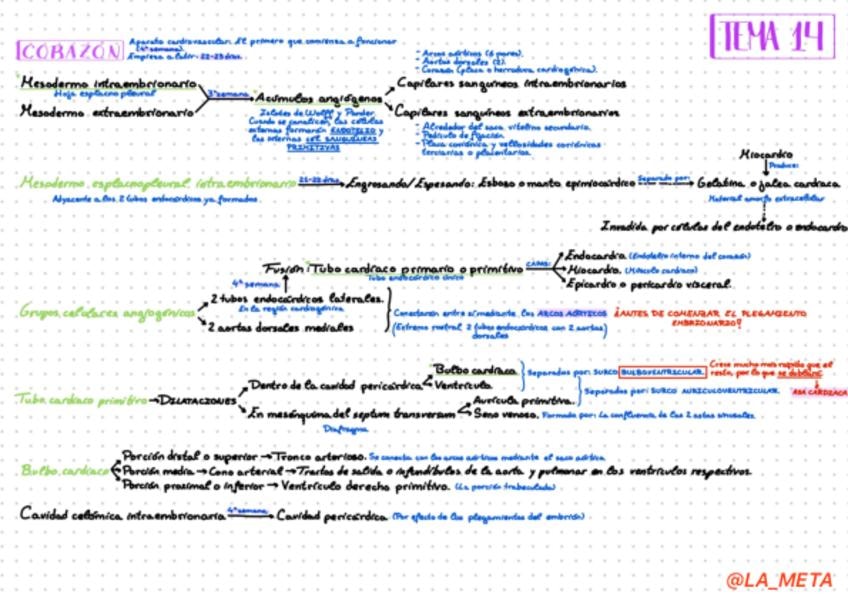 TEMA 14
CORAZÓN
Aparato cardiovascular: El primero que comienza a funcionar
(4ª semana).
Empieza a latir: 22-23 días.
Mesodermo intraembrionario
Hoja esplacnopleural
Mesodermo extraembrionario
3ª semana
Acúmulos angiógenos
Islotes de Wolff y Pander.
Cuando se canalizan, las células
externas formarán ENDOTELIO y
las internas CÉL SANGUÍNEAS
PRIMITIVAS
- Arcos aórticos (6 pares).
- Aortas dorsales (2).
- Corazón (placa o herradura cardiogénica).
Capilares sanguíneos intraembrionarios
Capilares sanguíneos extraembrionarios
- Alrededor del saco vitelino secundario.
- Pedículo de fijación
- Placa coriónica y vellosidades coriónicas
terciarias o placentarias.
Mesodermo esplacnopleural intraembrionario
Adyacente a los 2 tubos endocárdicos ya formados.
21-22 días
Engrosando/Espesando: Esbozo o manto epimiocárdico
Separado por:
Miocardio
Produce:
Gelatina o jalea cardiaca
Material amorfo extracelular
Invadida por células del endotelio o endocardio
Grupos celulares angiogénicos
2 tubos endocárdicos laterales.
En la región cardiogénica
2 aortas dorsales mediales
4ª semana
Fusión: Tubo cardíaco primario o primitivo
Tubo endocárdico único
CAPAS:
Endocardio. (Endotelio interno del corazón)
Miocardio. (Músculo cardíaco)
Epicardio o pericardio visceral.
Conectarán entre sí mediante los ARCOS AÓRTICOS
(Extremo rostral 2 tubos endocárdicos con 2 aortas)
dorsales
¿ANTES DE COMENZAR EL PLEGAMIENTO
EMBRIONARIO?
Tubo cardíaco primitivo → DILATACIONES
Dentro de la cavidad pericárdica
Bulbo cardíaco.
Ventrículo.
Separados por: SURCO BULBOVENTRICULAR.
Crece mucho más rápido que el
resto, por lo que se doblará:
ASA CARDÍACA
En mesénquima del septum transversum
Diafragma
Aurícula primitiva.
Seno venoso. Formado por: La confluencia de las 2 astas sinusales
Separados por: SURCO AURICULOVENTRICULAR.
Bulbo cardíaco
Porción distal o superior → Tronco arterioso. Se conecta con los arcos aórticos mediante el saco aórtico
Porción media → Cono arterial → Tractos de salida o infundíbulos de la aorta y pulmonar en los ventrículos respectivos.
Porción proximal o inferior → Ventrículo derecho primitivo. (La porción trabeculada)
Cavidad celómica intraembrionaria
4ª semana
Cavidad pericárdica (Por efecto de los plegamientos del embrión)
@LA_META